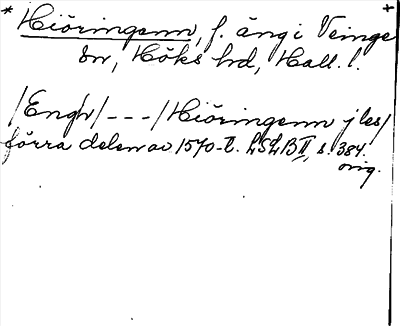 * Hiöringenn, f. äng i Veinge +
sn, Höks hd, Hall. l.
/Engh/ - - - / Hiöringenn j les/
förra delen av 1570-t. LSLB II, s. 384.
orig.